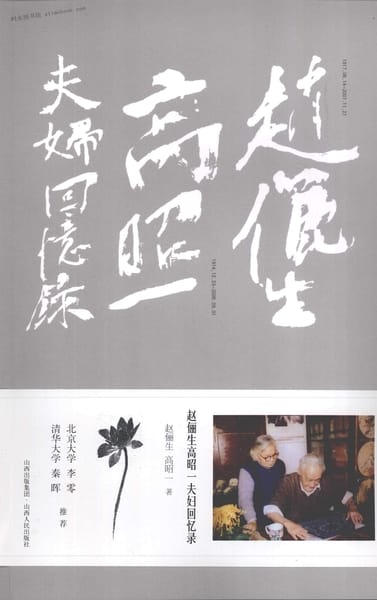 时光图书馆 alimebook.com
趙儷生
1917.06.14~2007.11.27
高昭一
夫婦回憶録
赵俪生高昭一夫妇回忆录
赵俪生 高昭一 著
北京大学 李 零
清华大学 秦 晖
推荐
山西出版集团·山西人民出版社